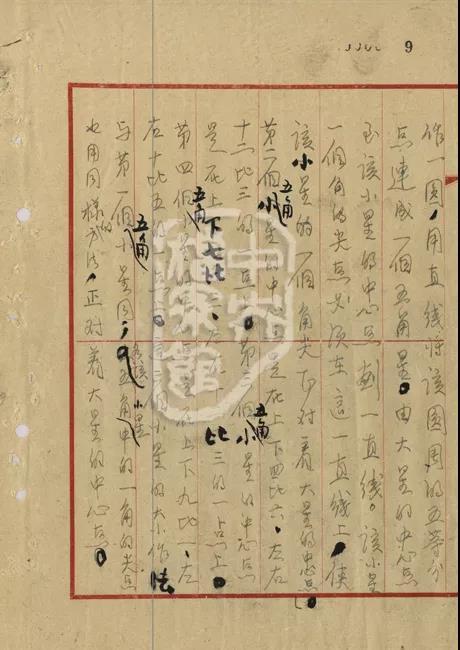 9
作一圆,用直线将该圆周的五等分
点连成一个五角星。由大星的中心点
至该小星的中心点劃一直线。该小星
一个角的尖点必须在這一直线上,使
该小星的一个角尖正对着大星的中心点。
第二个小五角星的中心点是在上下四比六、左右
十二比三的一点。第三个小五角星的中心点
是在上下七比、左右十二比三的一点上。
第四个五角星的中心点是在上下九比一、左
右十比五的一点。这三个小星的大小作法
与第一个五角星同;各该小星的一角的尖点
也用同樣的方法,正对着大星的中心点。
中央档案館